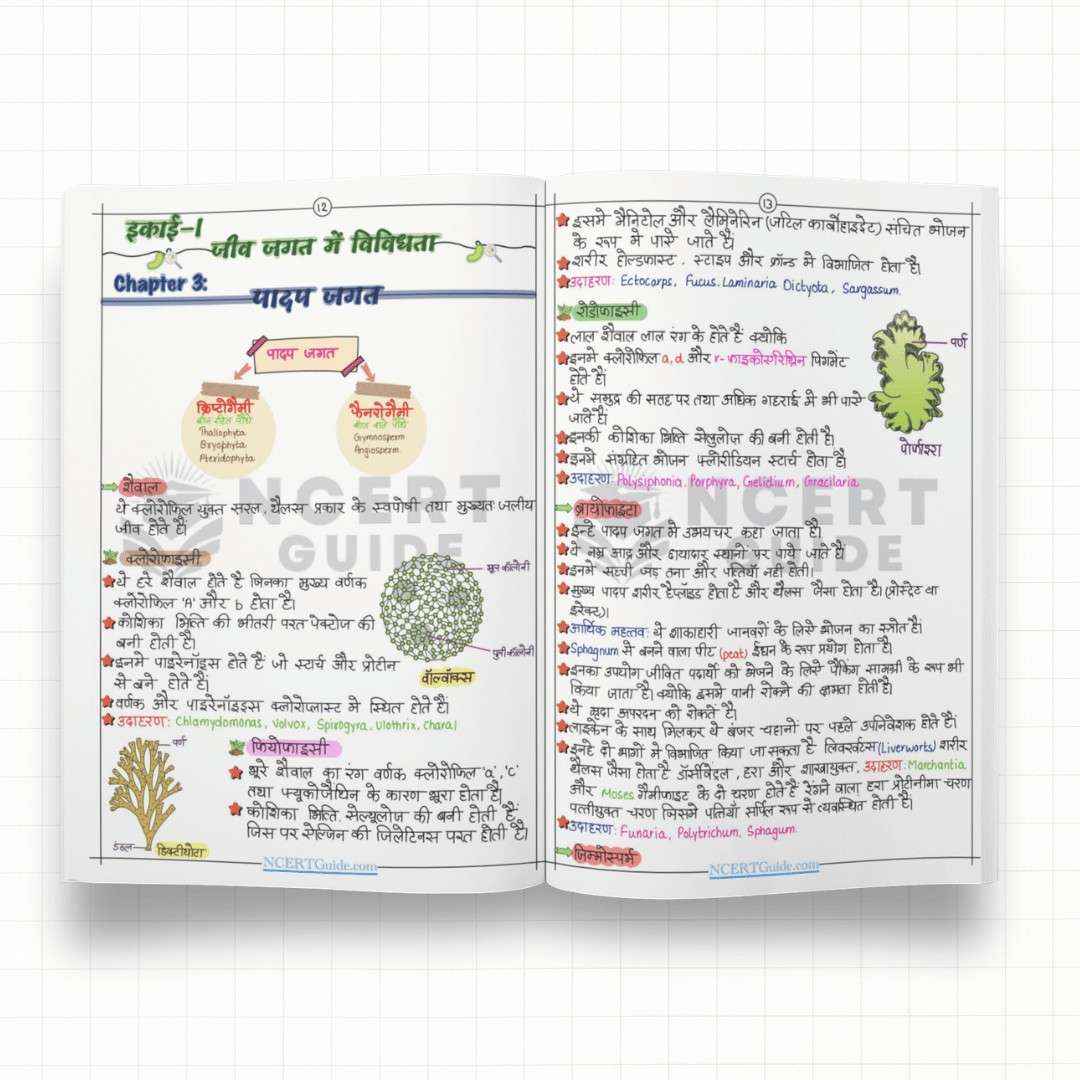 12
इकाई-1
जीव जगत में विविधता
Chapter 3:
पादप जगत
पादप जगत
क्रिप्टोगैमी
बीज रहित पौधे
Thallophyta
Bryophyta
Pteridophyta
फैनरोगैमी
बीज वाले पौधे
Gymnosperm
Angiosperm
शैवाल
ये क्लोरोफिल युक्त सरल, थैलस प्रकार के स्वपोषी तथा मुख्यतः जलीय
जीव होते हैं।
क्लोरोफाइसी
ये हरे शैवाल होते है जिनका मुख्य वर्णक
क्लोरोफिल 'A' और b होता है।
कोशिका भित्ति की भीतरी परत पेक्टोज की
बनी होती है।
इनमे पाइरेनॉइस होते हैं जो स्टार्च और प्रोटीन
से बने होते हैं।
वर्णक और पाइरेनॉइड्स क्लोरोप्लास्ट मे स्थित होते हैं।
उदाहरण: Chlamydomonas, Volvox, Spirogyra, Ulothrix, Chara।
कॉलोनी
पुत्री कॉलोनी
वॉल्वॉक्स
पर्ण
डंठल
डिक्टीयोटा
फियोफाइसी
भूरे शैवाल का रंग वर्णक क्लोरोफिल 'a', 'c'
तथा फ्यूकोजैंथिन के कारण भूरा होता है।
कोशिका भित्ति, सेल्यूलोज की बनी होती है,
जिस पर सेल्जिन की जिलेटिनस परत होती है।
NCERTGuide.com
13
इसमे मैनिटोल और लैमिनेरिन (जटिल कार्बोहाइड्रेट) संचित भोजन
के रूप में पाये जाते हैं।
शरीर होल्डफास्ट, स्टाइप और फ्रॉन्ड मे विभाजित होता है।
उदाहरण: Ectocarps, Fucus. Laminaria Dictyota, Sargassum.
रोडोफाइसी
लाल शैवाल लाल रंग के होते हैं क्योंकि
इनमे क्लोरोफिल a, d और r- फाइकोएरिथ्रिन पिगमेंट
होते हैं।
ये समुद्र की सतह पर तथा अधिक गहराई मे भी पाये
जाते हैं।
इनकी कोशिका भित्ति सेलुलोज की बनी होती है।
इनमे संग्रहित भोजन फ्लोरीडियन स्टार्च होता है।
उदाहरण: Polysiphonia, Porphyra, Gelidium, Gracilaria.
पर्ण
पोर्फाइरा
ब्रायोफाइटा
इन्हे पादप जगत मे उभयचर कहा जाता है।
ये नम्र आद्र और छायादार स्थानो पर पाये जाते हैं।
इनमे सच्ची जड़ तना और पत्तियां नही होती।
मुख्य पादप शरीर हैप्लाइड होता है और थैलस जैसा होता है। (प्रोस्ट्रेट या
इरेक्ट)।
आर्थिक महत्तव: ये शाकाहारी जानवरों के लिये भोजन का स्त्रोत है।
Sphagnum से बनने वाला पीट (peat) ईंधन के रूप प्रयोग होता है।
इनका उपयोग जीवित पदार्थो को भेजने के लिये पैकिंग सामग्री के रूप भी
किया जाता है। क्योकि इसमे पानी रोकने की क्षमता होती है।
ये मृदा अपरदन को रोकते हैं।
लाइकेन के साथ मिलकर ये बंजर चट्टानो पर पहले उपनिवेशक होते है।
इन्हे दो भागो मे विभाजित किया जा सकता है लिवरवर्टस (Liverworts) शरीर
थैलस जैसा होता है डॉर्सीवेंट्रल, हरा और शाखायुक्त, उदाहरण: Marchantia
और Moses गैमीफाइट के दो चरण होते है रेंगने वाला हरा प्रोटीनीमा चरण
पत्तीयुक्त चरण जिसमे पतियाँ सर्पिल रूप से व्यवस्थित होती है।
उदाहरण: Funaria, Polytrichum, Sphagum.
जिम्नोस्पर्म
NCERTGuide.com
NCERT
GUIDE
NCERT
GUIDE